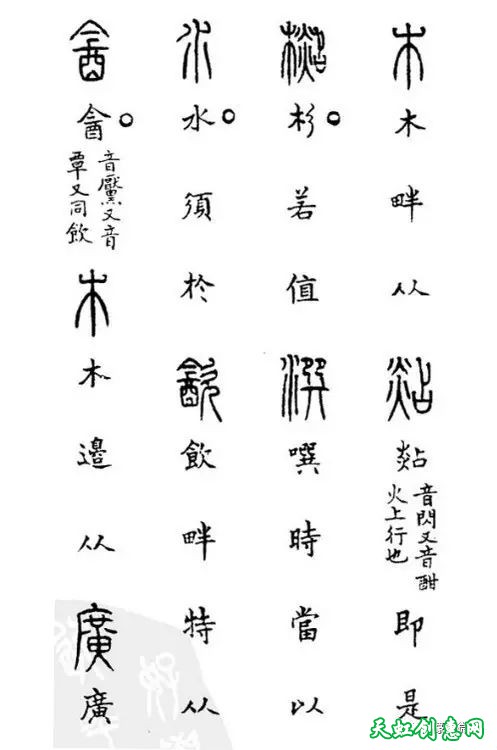 木木畔从煔煔音閃又音酣火上行也即是
檆杉○若值潠噀時當以
水水○須於㱃飲畔特从
酓酓○音黶又音覃又同飲木木邊从廣廣
天虹创意网